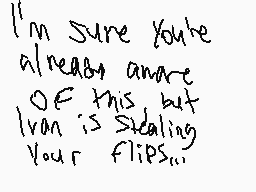 I'm sure You're
already aware
OF this, but
Ivan is Stealing
Your flips...